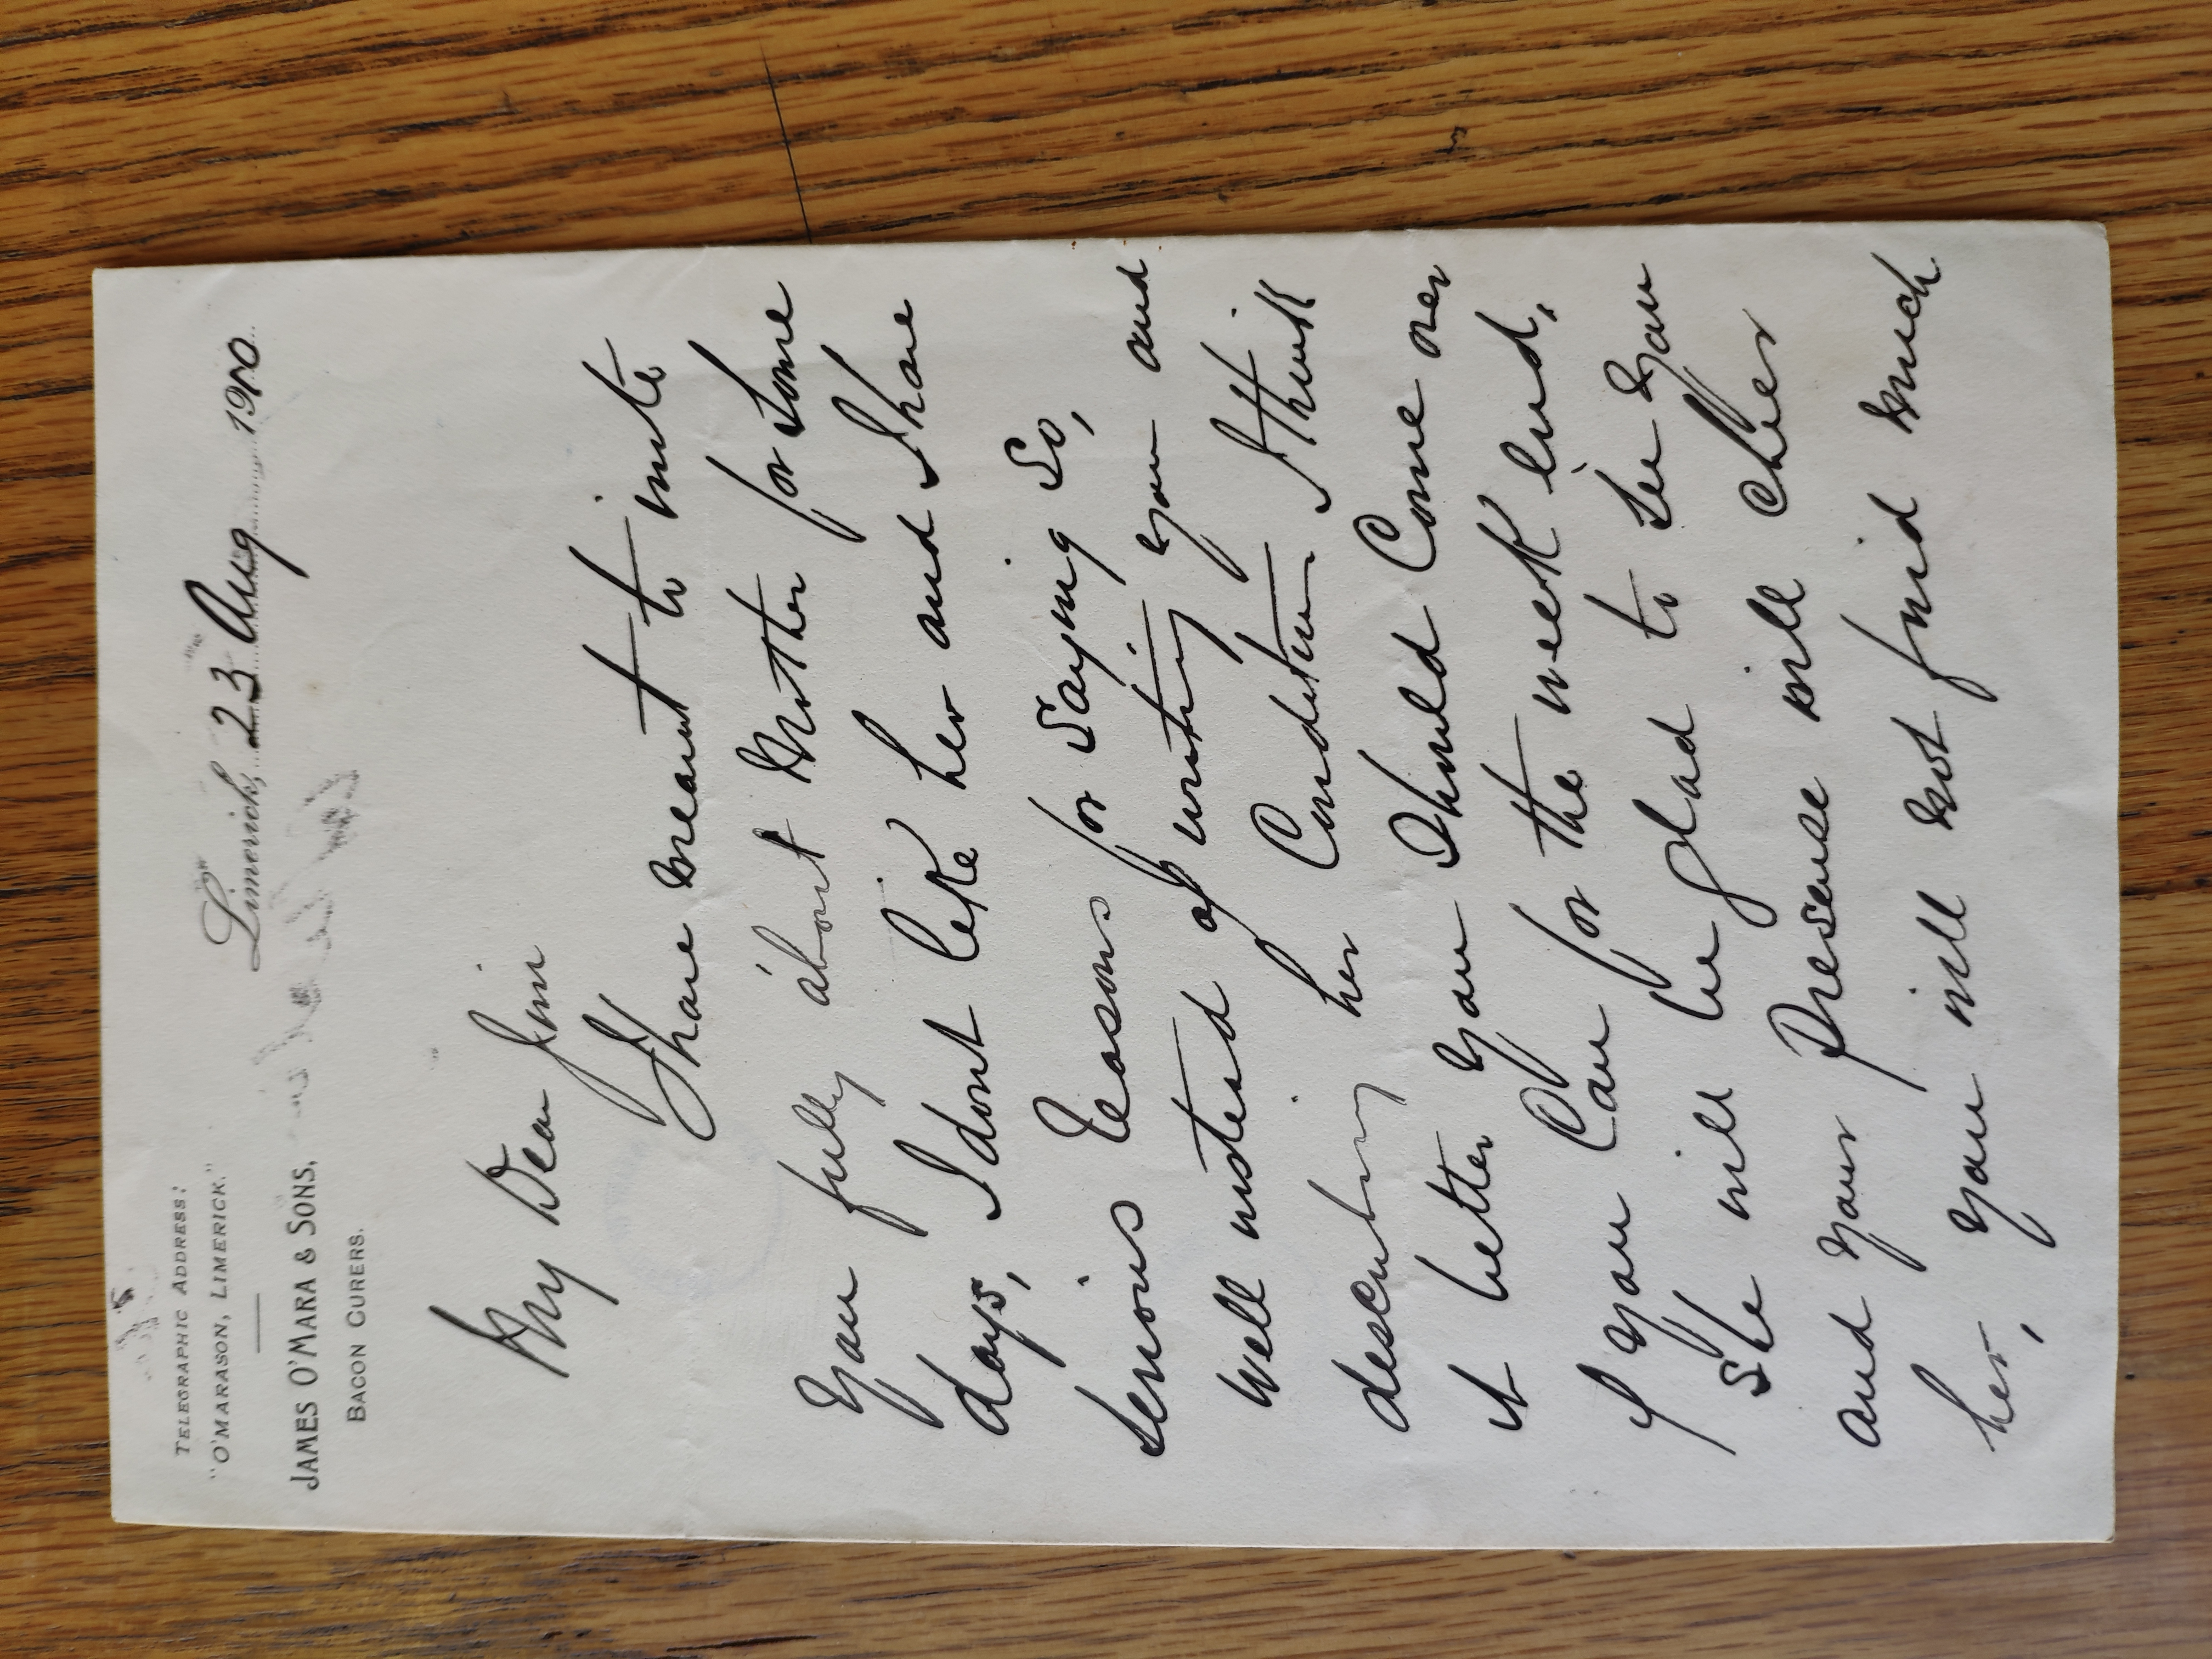 TELEGRAPHIC ADDRESS:
"O'MARASON, LIMERICK."
JAMES O'MARA & SONS,
BACON CURERS.
Limerick, 23 Aug 1900
My Dear Jim
I have meant to write
you fully about Mother for some
days, I dont like her and I have
serious reasons for saying so,
well instead of writing you and
describing her Condition I think
it better you should Come over
if you Can for the week End,
She will be glad to see you
and your Presense will cheer
her, you will not find much